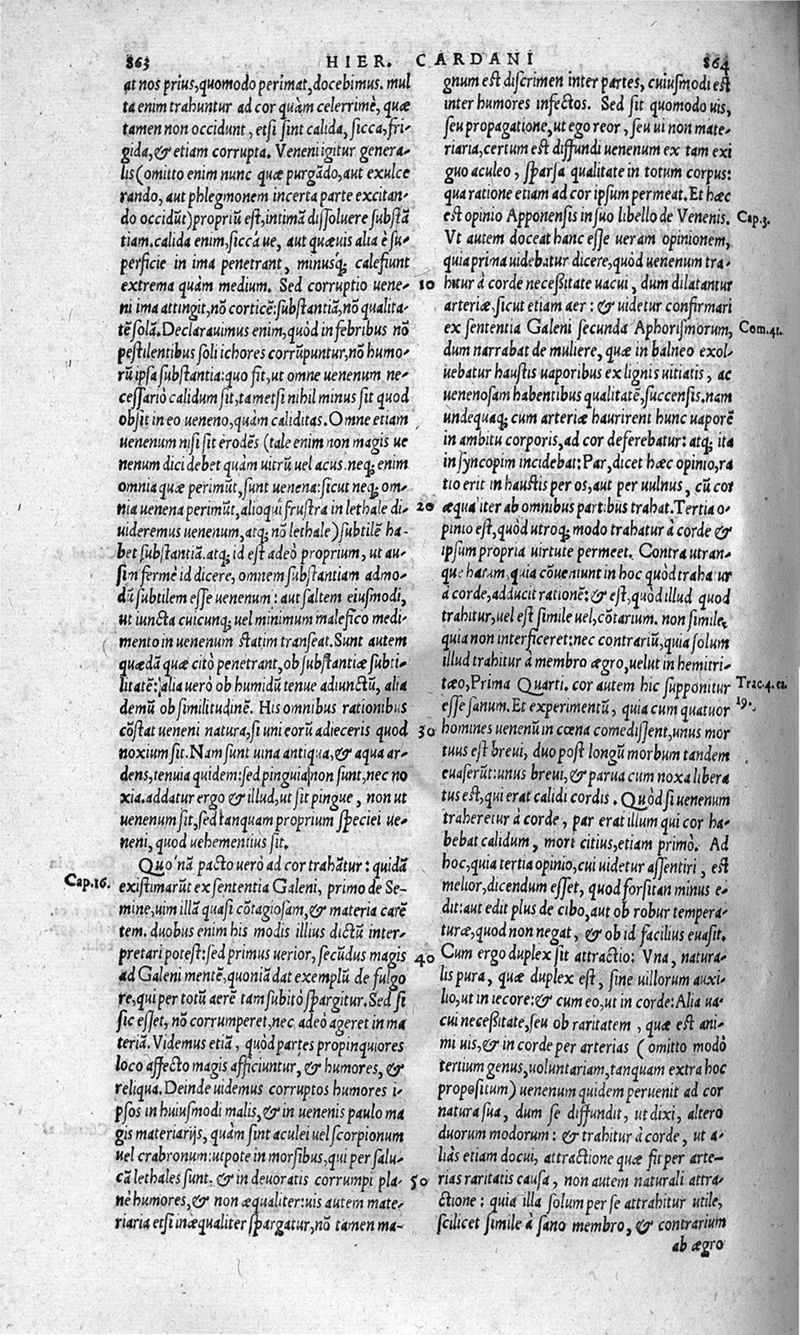 863 HIER. CARDANI 864
at nos prius, quomodo perimat, docebimus. mul
ta enim trahuntur ad cor quàm celerrimè, quæ
tamen non occidunt, etsi sint calida, sicca, fri-
gida, & etiam corrupta. Veneni igitur genera-
lis (omitto enim nunc quæ purgãdo, aut exulce
rando, aut phlegmonem incerta parte excitan-
do occidũt) propriũ est, intimã dissoluere substã
tiam. calida enim, siccá ue, aut quæuis alia è su-
perficie in ima penetrant, minusq́; calefiunt
extrema quàm medium. Sed corruptio uene-
ni ima attingit, nõ corticẽ: substantiã, nõ qualita-
tẽ solã. Declarauimus enim, quòd in febribus nõ
pestilentibus soli ichores corrũpuntur, nõ humo-
rũ ipsa substantia: quo fit, ut omne uenenum ne-
cessariò calidum sit, tametsi nihil minus sit quod
obsit in eo ueneno, quàm caliditas. Omne etiam
uenenum nisi sit erodẽs (tale enim non magis ue
nenum dici debet quàm uitrũ uel acus. neq; enim
omnia quæ perimũt, sunt uenena: sicut neq; om-
nia uenena perimũt, alioqui frustra in lethale di-
uideremus uenenum, atq; nõ lethale) subtilẽ ha-
bet substantiã. atq; id est adeò proprium, ut au-
sin fermè id dicere, omnem substantiam admo-
dũ subtilem esse uenenum: aut saltem eiusmodi,
ut iuncta cuicunq; uel minimum malefico medi-
mento in uenenum statim transeat. Sunt autem
quædã quæ citò penetrant, ob substantiæ subti-
litatẽ: alia uerò ob humidũ tenue adiunctũ, alia
demũ ob similitudinẽ. His omnibus rationibus
cõstat ueneni natura, si uni eorũ adieceris quod
noxium sit. Nam sunt uina antiqua, & aqua ar-
dens, tenuia quidem: sed pinguia non sunt, nec no
xia. addatur ergo & illud, ut sit pingue, non ut
uenenum sit, sed tanquam proprium speciei ue-
neni, quod uehementius sit.
Quo'nã pacto uerò ad cor trahãtur: quidã
Cap.16.
existimarũt ex sententia Galeni, primo de Se-
mine, uim illã quasi cõtagiosam, & materia carẽ
tem. duobus enim his modis illius dictũ inter-
pretari potest: sed primus uerior, secũdus magis
ad Galeni mentẽ, quoniã dat exemplũ de fulgo
re, qui per totũ aerẽ tam subitò spargitur. Sed si
sic esset, nõ corrumperet, nec adeò ageret in ma
teriã. Videmus etiã, quòd partes propinquiores
loco affecto magis afficiuntur, & humores, &
reliqua. Deinde uidemus corruptos humores i-
psos in huiusmodi malis, & in uenenis paulo ma
gis materiarijs, quàm sint aculei uel scorpionum
uel crabronum: utpote in morsibus, qui per saliu-
cã lethales sunt, & in deuoratis corrumpi pla-
nè humores, & non æqualiter: uis autem mate-
riaria etsi inæqualiter spargatur, nõ tamen ma-
10
20
30
40
50
gnum est discrimen inter partes, cuiusmodi est
inter humores infectos. Sed sit quomodo uis,
seu propagatione, ut ego reor, seu ui non mate-
riaria, certum est diffundi uenenum ex tam exi
guo aculeo, sparsa qualitate in totum corpus:
qua ratione etiam ad cor ipsum permeat. Et hæc
est opinio Apponensis in suo libello de Venenis.
Cap.3.
Vt autem doceat hanc esse ueram opinionem,
quia prima uidebatur dicere, quòd uenenum tra-
hitur à corde necessitate uacui, dum dilatantur
arteriæ, sicut etiam aer: & uidetur confirmari
ex sententia Galeni secunda Aphorismorum,
Com.41.
dum narrabat de muliere, quæ in balneo exol-
uebatur haustis uaporibus ex lignis uitiatis, ac
uenenosam habentibus qualitatẽ, succensis. nam
undequaq; cum arteriæ haurirent hunc uaporẽ
in ambitu corporis, ad cor deferebatur: atq; ita
in syncopim incidebat: Par, dicet hæc opinio, ra
tio erit in haustis per os, aut per uulnus, cũ cor
æqualiter ab omnibus partibus trahat. Tertia o-
pinio est, quòd utroq; modo trahatur à corde &
ipsum propria uirtute permeet. Contra utran-
que harum, quia cõueniunt in hoc quòd trahatur
à corde, adducit rationẽ: & est, quòd illud quod
trahitur, uel est simile uel, cõtrarium. non simile,
quia non interficeret: nec contrariũ, quia solum
illud trahitur à membro ægro, uelut in hemitri-
tæo, Prima Quarti. cor autem hic supponitur
Trac.4.ca.
19.
esse sanum. Et experimentũ, quia cum quatuor
homines uenenũ in cœna comedissent, unus mor
tuus est breui, duo post longũ morbum tandem
euaserũt: unus breui, & parua cum noxa libera
tus est, qui erat calidi cordis. Quòd si uenenum
traheretur à corde, par erat illum qui cor ha-
bebat calidum, mori citius, etiam primò. Ad
hoc, quia tertia opinio, cui uidetur assentiri, est
melior, dicendum esset, quod forsitan minus e-
dit: aut edit plus de cibo, aut ob robur tempera-
turæ, quod non negat, & ob id facilius euasit.
Cum ergo duplex sit attractio: Vna, natura-
lis pura, quæ duplex est, sine uillorum auxi-
lio, ut in iecore: & cum eo, ut in corde: Alia ua-
cui necessitate, seu ob raritatem, quæ est ani-
mi uis, & in corde per arterias (omitto modò
tertium genus, uoluntariam, tanquam extra hoc
propositum) uenenum quidem peruenit ad cor
natura sua, dum se diffundit, ut dixi, altero
duorum modorum: & trahitur à corde, ut a-
liàs etiam docui, attractione quæ fit per arte-
rias raritatis causa, non autem naturali attra-
ctione: quia illa solum per se attrahitur utile,
scilicet simile à sano membro, & contrarium
ab ægro